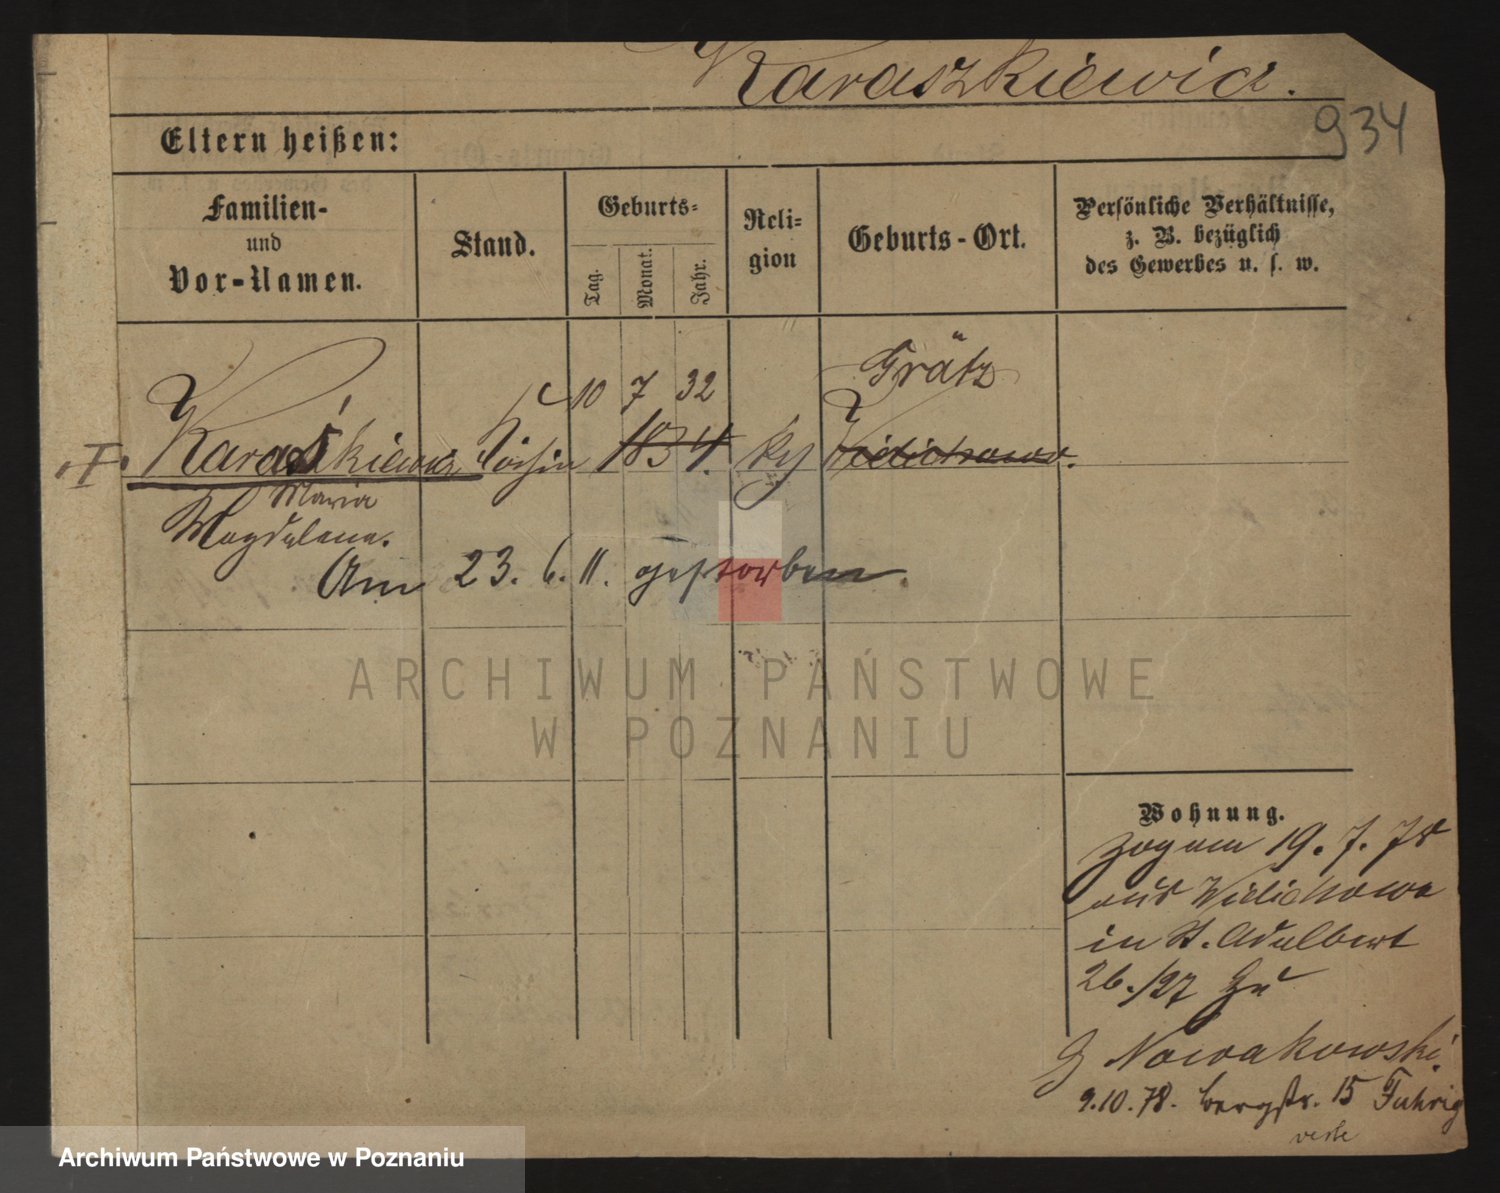 Karaszkiewicz.
934
Eltern heißen:
Familien-
und
Vor-Namen.
Stand.
Geburts-
Tag.
Monat.
Jahr.
Reli-
gion
Geburts-Ort.
Persönliche Verhältnisse,
z. B. bezüglich
des Gewerbes u. s. w.
Grätz
10 7 32
I. Karaśkiewicz Köchin 1834. Wielichowo.
Maria
Magdalena.
Am 23. 6. 11. gestorben.
ARCHIWUM PAŃSTWOWE
W POZNANIU
Wohnung.
Zog am 19. 7. 78
aus Wielichowo
in St. Adalbert
26./27 zu
Nowakowski.
9.10.78. Bergstr. 15 Fuhrig
Archiwum Państwowe w Poznaniu